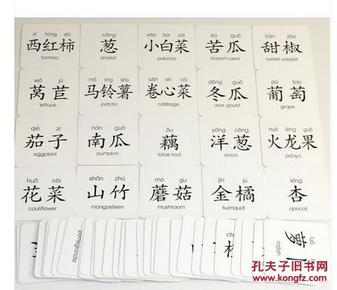 xī hóng shì
西红柿
tomato
cōng
葱
shallot
xiǎo bái cài
小白菜
pakchoi
kǔ guā
苦瓜
balsam pear
tián jiāo
甜椒
sweet pepper
wō jù
莴苣
lettuce
mǎ líng shǔ
马铃薯
potato
juǎn xīn cài
卷心菜
cabbage
dōng guā
冬瓜
wax gourd
pú táo
葡萄
grape
qié zi
茄子
eggplant
nán guā
南瓜
pumpkin
ǒu
藕
lotus root
yáng cōng
洋葱
onion
huǒ lóng guǒ
火龙果
pitaya
huā cài
花菜
cauliflower
shān zhú
山竹
mangosteen
mó gū
蘑菇
mushroom
jīn jú
金橘
kumquat
xìng
杏
apricot
pomegranate
孔夫子旧书网
www.kongfz.com